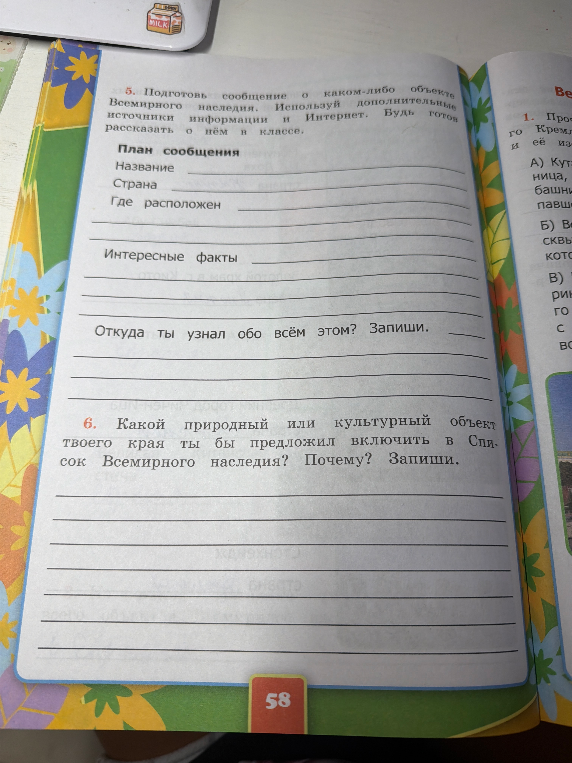 MILK
5. Подготовь сообщение о каком-либо объекте
Всемирного наследия. Используй дополнительные
источники информации и Интернет. Будь готов
рассказать о нём в классе.
План сообщения
Название
Страна
Где расположен
Интересные факты
Откуда ты узнал обо всём этом? Запиши.
6. Какой природный или культурный объект
твоего края ты бы предложил включить в Спи-
сок Всемирного наследия? Почему? Запиши.
58
1.
го
и её
А)
ница,
Б)
В)
го
с